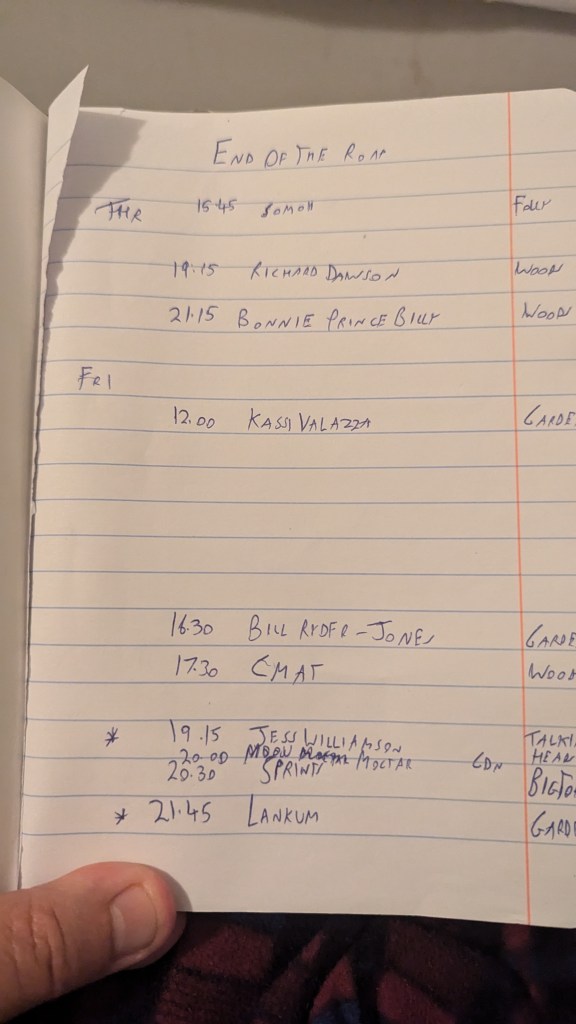 END OF THE ROAD
THR 15.45 Folly
19:15 RICHARD DAWSON WOOD
21.15 BONNIE PRINCE BILLY WOOD
FRI
12.00 KASSI VALAZZA GARDE
16.30 BILL RYDER-JONES GARDE
17.30 CMAT WOOD
* 19.15 JESS WILLIAMSON TALKI
20.00 MOCTAR GDN HEAR
20.30 SPRINTS BIGTO
* 21.45 LANKUM GARD